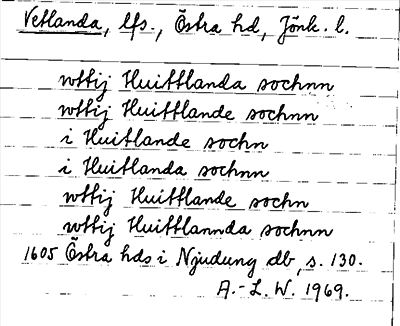 Vetlanda, lfs., Östra hd, Jönk. l.
wttij Huittlanda sochnn
wttij Huittlande sochnn
i Huitlande sochn
i Huitlanda sochnn
wttij Huittlande sochn
wttij Huittlannda sochnn
1605 Östra hds i Njudung db, s. 130.
A.-L. W. 1969.